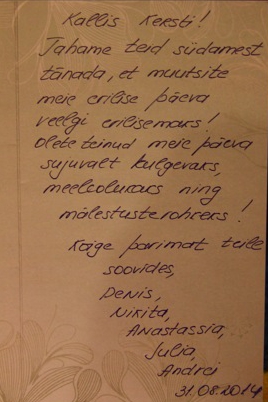 Kallis Kersti!
Tahame teid südamest
tänada, et muutsite
meie erilise päeva
veelgi erilisemaks!
Olete teinud meie päeva
sujuvalt kulgevaks,
meeleolukaks ning
mälestusterohkeks!
Kõige parimat teile
soovides,
Denis,
Nikita,
Anastassia,
Julia,
Andrei
31.08.2014